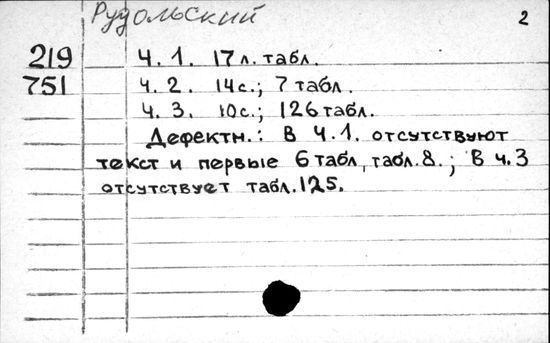 Рудольский 2
219 Ч. 1. 17 л. табл.
751 Ч. 2. 14с.; 7 табл.
Ч. 3. 10с.; 126 табл.
Дефектн.: В Ч.1. отсутствуют
текст и первые 6 табл, табл.8.; В ч.3
отсутствует табл.125.